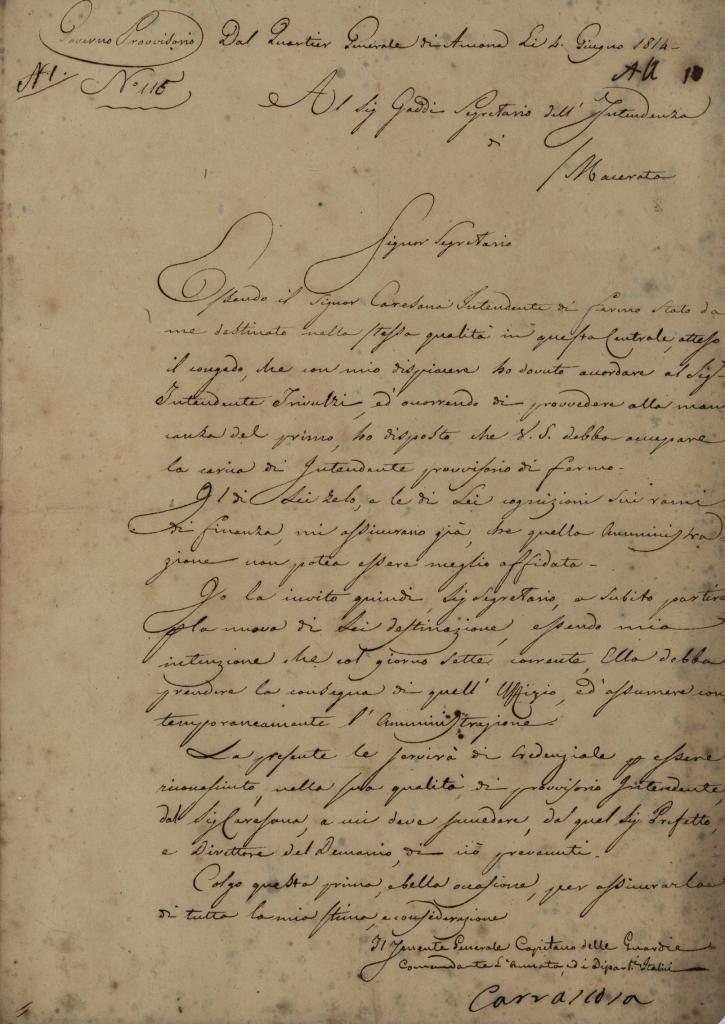 Governo Provvisorio Dal Quartier Generale di Ancona Li 4. Giugno 1814
N 1. N.o 116 All 10
Al Sig Gaddi Segretario dell' Intendenza
di
Macerata
Signor Segretario
Essendo il Signor Caresana Intendente di Fermo stato da
me destinato nella stessa qualità in questa Centrale, atteso
il congedo, che con mio dispiacere ho dovuto accordare al Sig.
Intendente Trivulzi, ed occorrendo di provvedere alla man
canza del primo, ho disposto che V. S. debba occupare
la carica di Intendente provvisorio di Fermo.
Il di Lei zelo, e le di Lei cognizioni sui rami
di finanza, mi assicurano già, che quella Amministra
zione non potea essere meglio affidata.
Io la invito quindi, Sig Segretario, a subito partire
p la nuova di Lei destinazione, essendo mia
intenzione che col giorno sette corrente, Ella debba
prendere la consegna di quell' Uffizio, ed' assumere con
temporaneamente l' Amministrazione.
La presente le servirà di Credenziale p essere
riconosciuto, nella sua qualità di provvisorio Intendente,
dal Sig Caresana, a cui deve succedere, dal quel Sig Prefetto,
e Direttore del Demanio, di ciò prevenuti.
Colgo questa prima, e bella occasione, per assicurarla
di tutta la mia stima, e considerazione
Il Tenente Generale Capitano delle Guardie
Comandante L'Armata, ed i Dipart.ti Italici
Carrascosa